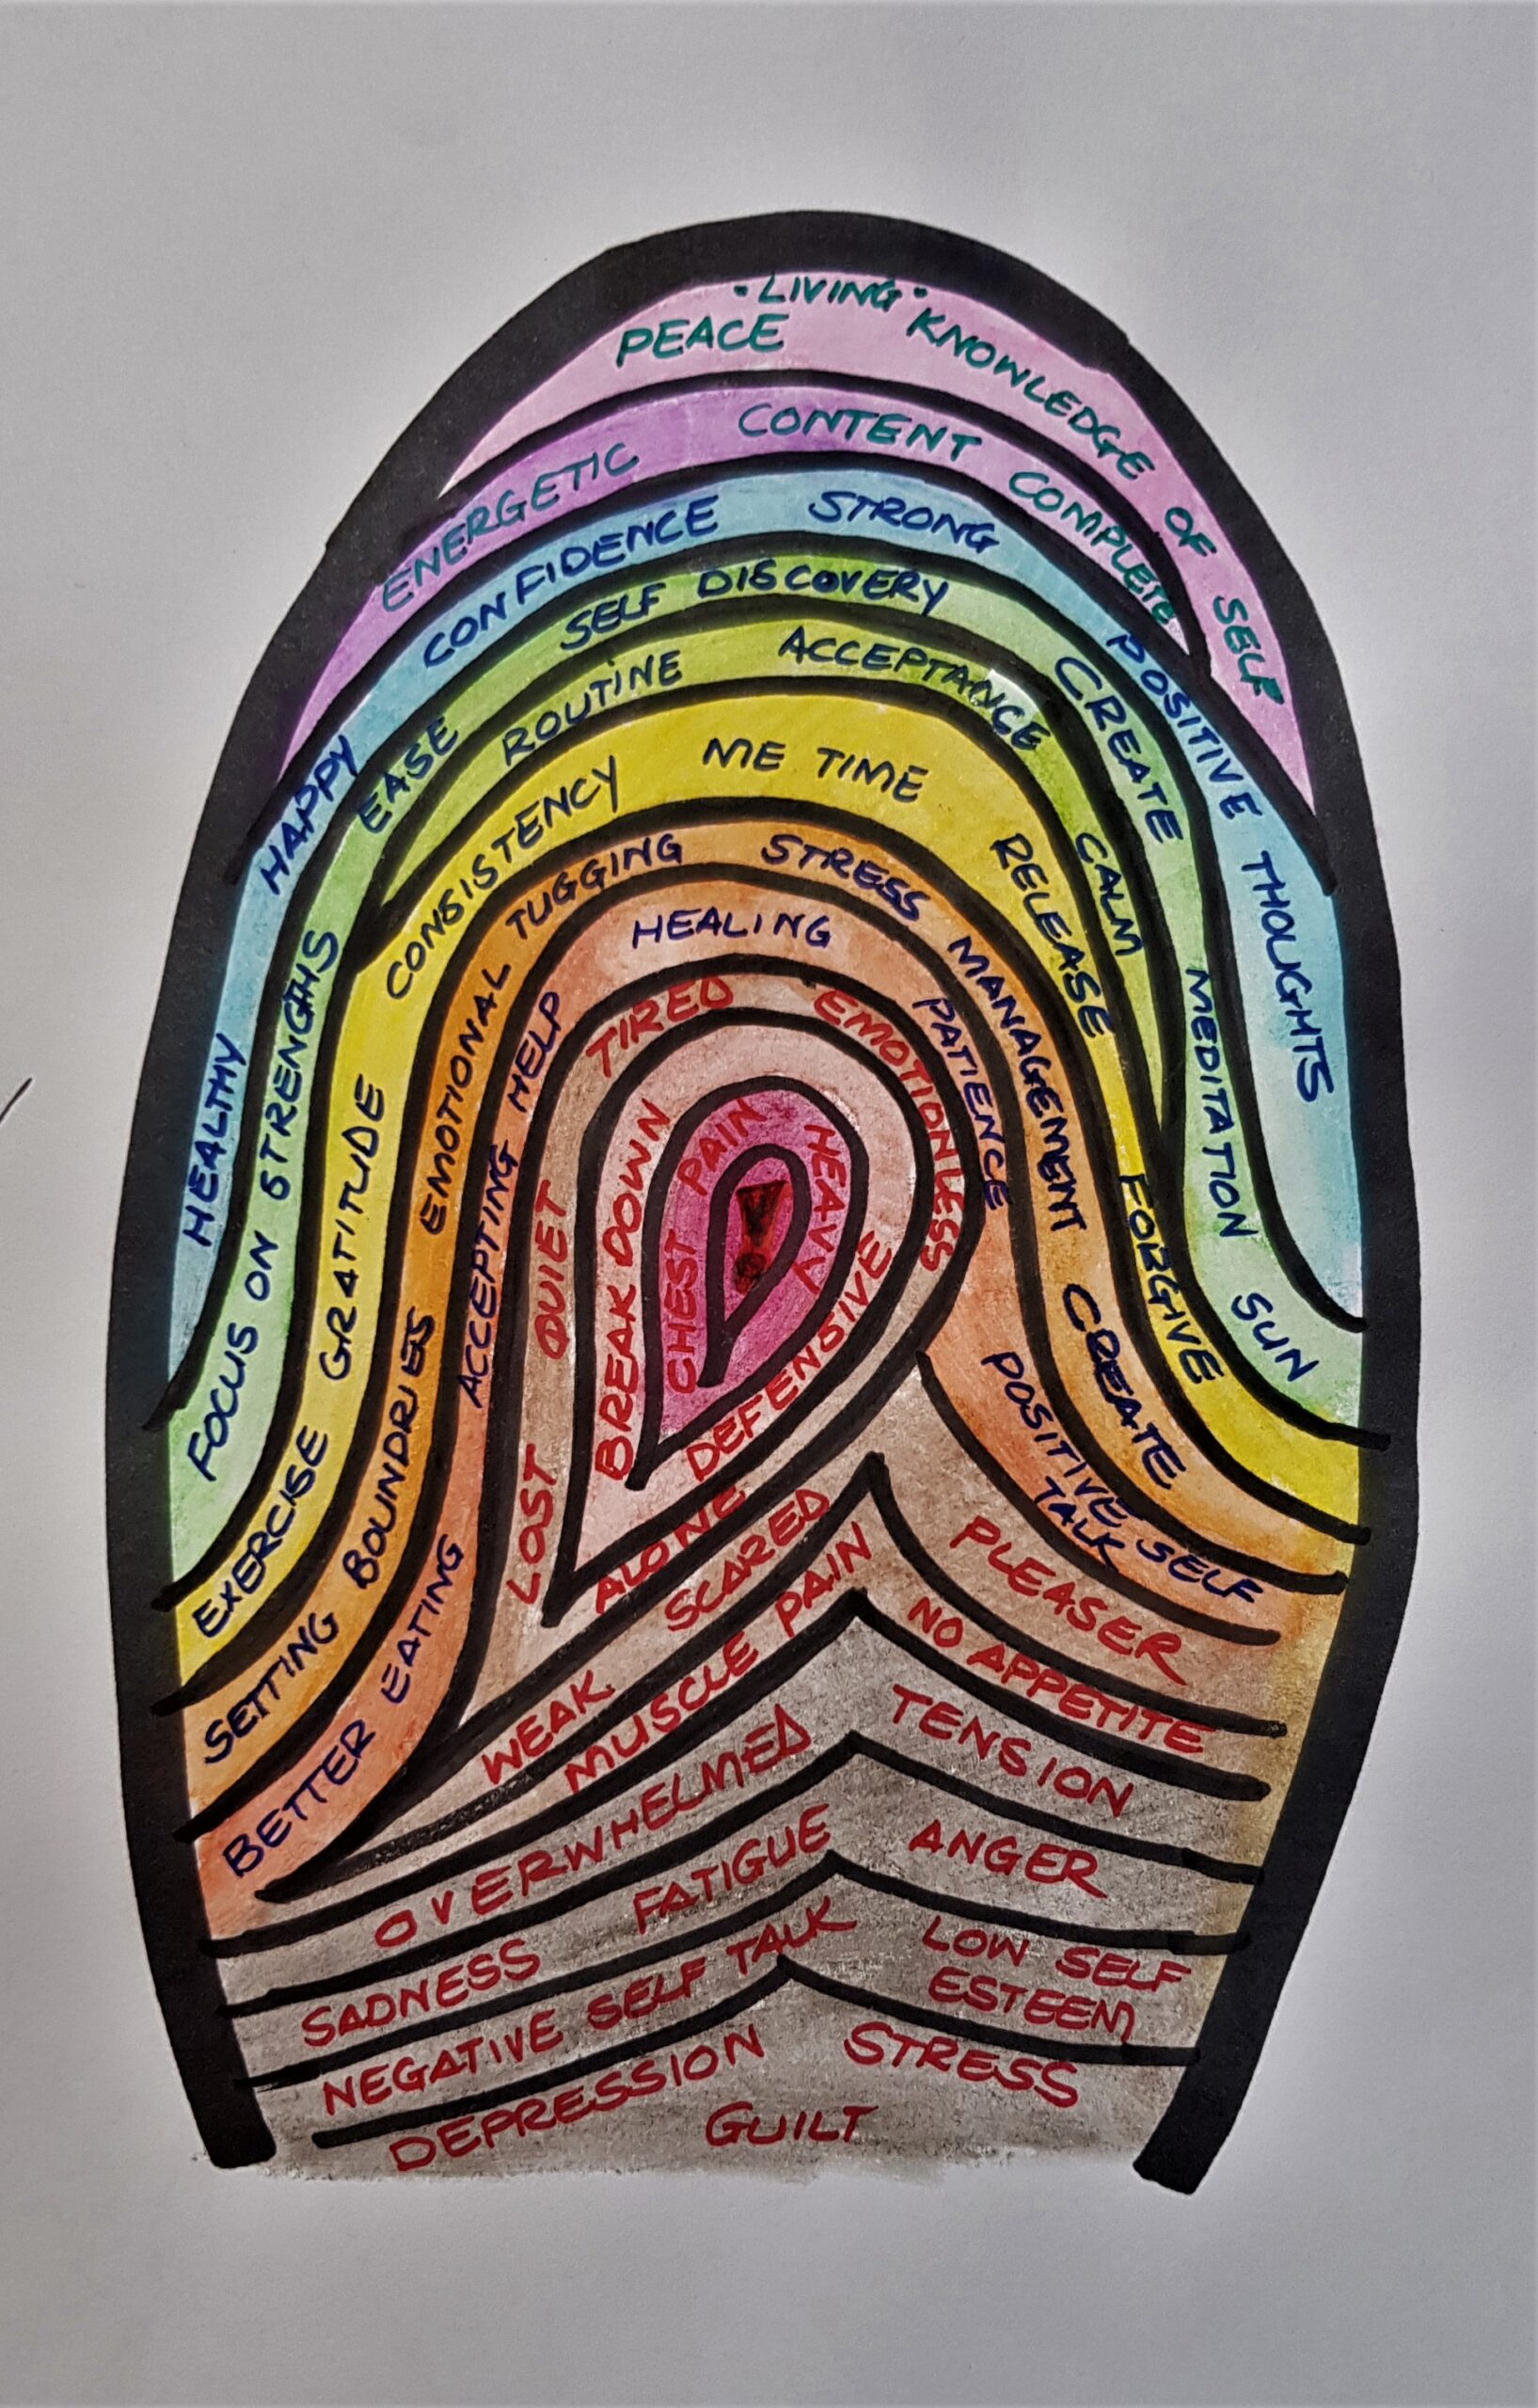 "LIVING"
PEACE KNOWLEDGE OF SELF
ENERGETIC CONTENT COMPLETE
HEALTHY HAPPY CONFIDENCE STRONG POSITIVE THOUGHTS
FOCUS ON STRENGTHS EASE SELF DISCOVERY CREATE MEDITATION SUN
ROUTINE ACCEPTANCE CALM
EXERCISE GRATITUDE CONSISTENCY ME TIME RELEASE FORGIVE
SETTING BOUNDRIES EMOTIONAL TUGGING STRESS MANAGEMENT CREATE
BETTER EATING ACCEPTING HELP HEALING PATIENCE POSITIVE SELF
TALK
LOST QUIET TIRED EMOTIONLESS
BREAK DOWN
CHEST PAIN HEAVY
!
DEFENSIVE
ALONE
WEAK SCARED
PLEASER
MUSCLE PAIN NO APPETITE
OVERWHELMED TENSION
SADNESS FATIGUE ANGER
NEGATIVE SELF TALK LOW SELF
ESTEEM
DEPRESSION STRESS
GUILT